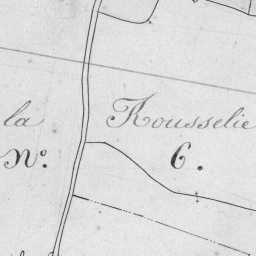 la Rousselie
N° 6.